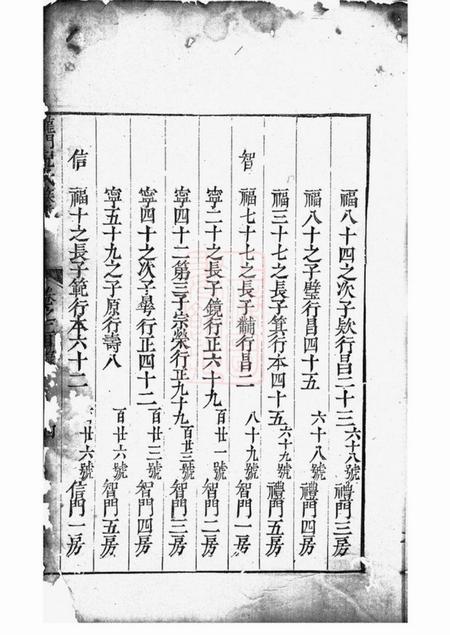 福八十四之次子欵行昌二十三 六十八號 禮門三房
福八十之子璧行昌四十五 六十八號 禮門四房
福三十七之長子箕行本四十五 六十九號 禮門五房
智 福七十七之長子黼行昌二 八十九號 智門一房
寧二十之長子鏡行正六十九 百廿一號 智門二房
寧四十二第三子宗榮行正九十九 百廿三號 智門三房
寧四十之次子學行正四十二 百廿三號 智門四房
寧五十九之子原行壽八 百廿六號 智門五房
信 福十之長子範行本六十二 廿六號 信門一房